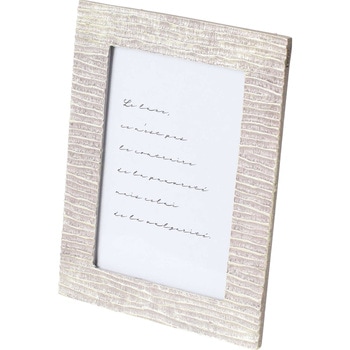 Le luxe,
ce n'est pas
le contraire
de la pauvreté
mais celui
de la vulgarité.